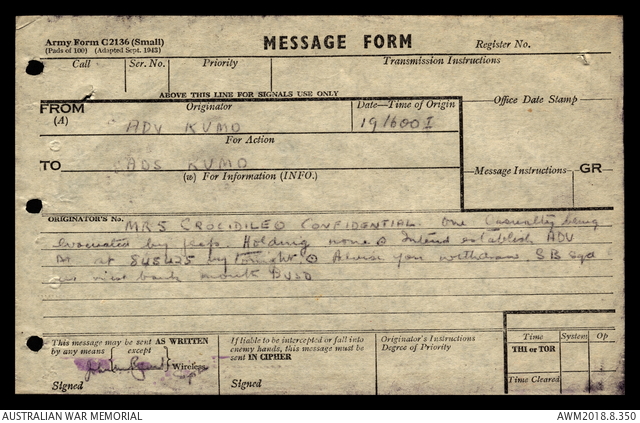 Army Form C2136 (Small)
(Pads of 100) (Adapted Sept. 1943)
MESSAGE FORM
Register No.
Call
Ser. No.
Priority
Transmission Instructions
ABOVE THIS LINE FOR SIGNALS USE ONLY
FROM
(A)
Originator
Date—Time of Origin
Office Date Stamp
ADV KVMO
19/600 I
For Action
TO
CADS KVMO
(w) For Information (INFO.)
Message Instructions
GR
ORIGINATOR'S No.
MR5 CONFIDENTIAL. One Casualty being
evacuated by jeep. Holding none Intend establish ADV
at 848425 by tonight Advise you withdraw SB Sqd
bank mouth
This message may be sent AS WRITTEN
by any means except
Wireless
Signed
If liable to be intercepted or fall into
enemy hands, this message must be
sent IN CIPHER
Signed
Originator's Instructions
Degree of Priority
Time
System
Op
THI or TOR
Time Cleared
AUSTRALIAN WAR MEMORIAL
AWM2018.8.350